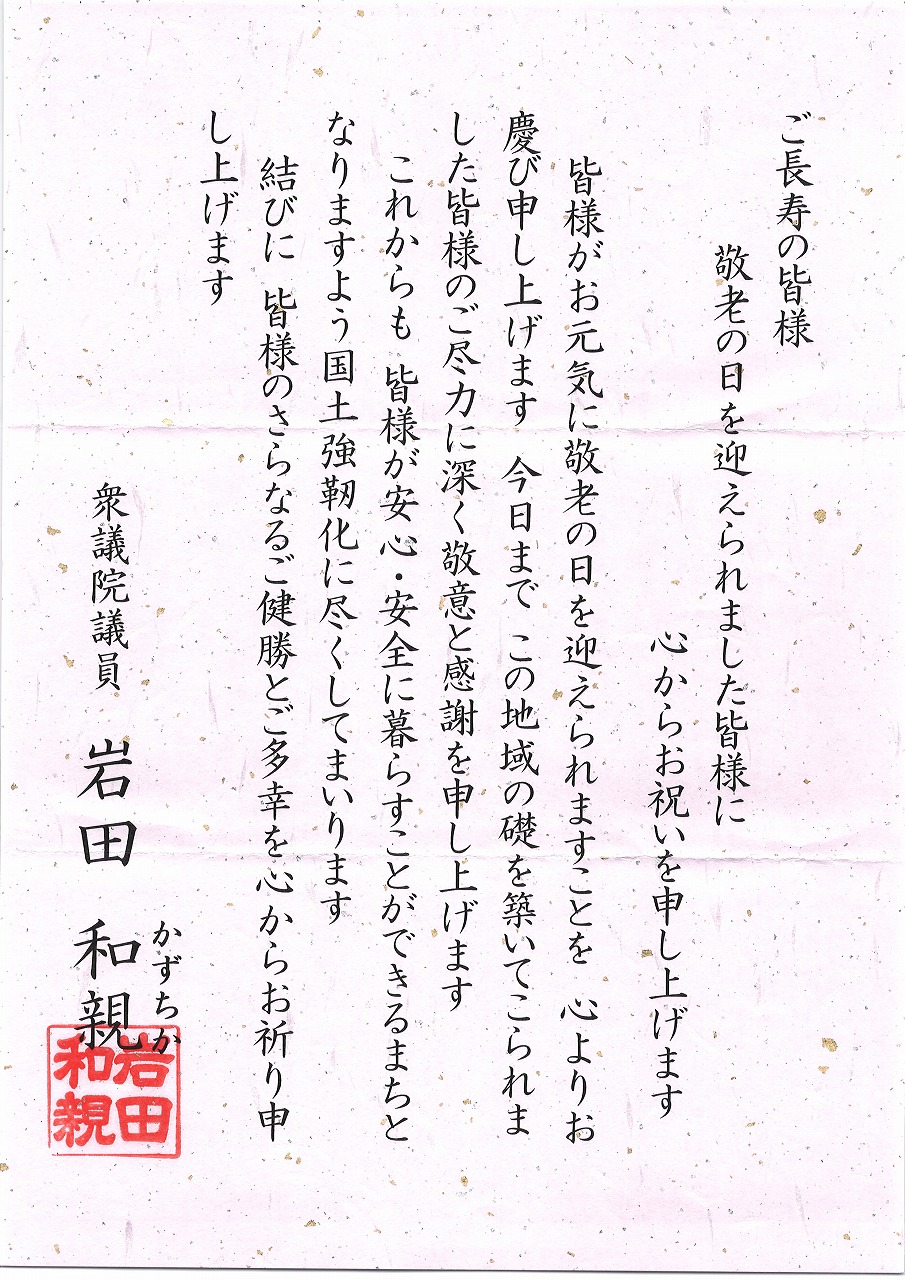 ご長寿の皆様
敬老の日を迎えられました皆様に
心からお祝いを申し上げます
皆様がお元気に敬老の日を迎えられますことを　心よりお
慶び申し上げます　今日まで　この地域の礎を築いてこられま
した皆様のご尽力に深く敬意と感謝を申し上げます
これからも　皆様が安心・安全に暮らすことができるまちと
なりますよう国土強靭化に尽くしてまいります
結びに　皆様のさらなるご健勝とご多幸を心からお祈り申
し上げます
衆議院議員　岩田　和親
かずちか
岩田
和親